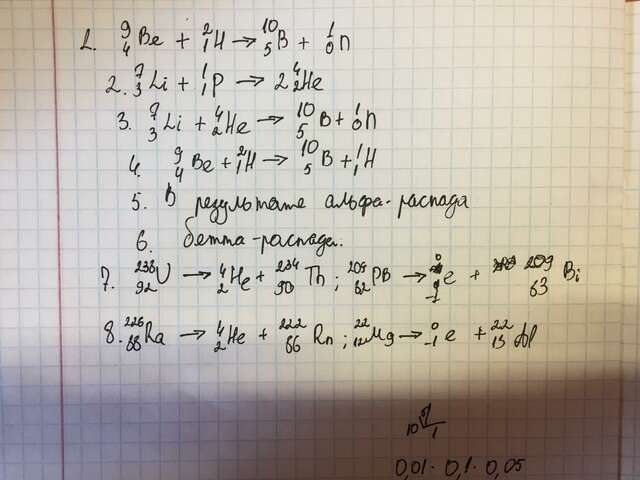 1. ⁹₄Be + ²₁H → ¹⁰₅B + ¹₀n
2. ⁷₃Li + ¹₁p → 2 ⁴₂He
3. ⁷₃Li + ⁴₂He → ¹⁰₅B + ¹₀n
4. ⁹₄Be + ²₁H → ¹⁰₅B + ¹₁H
5. В результате альфа-распада
6. бетта-распада.
7. ²³⁸₉₂U → ⁴₂He + ²³⁴₉₀Th ; ²⁰⁹₈₂PB → ⁰₋₁e + ²⁰⁹₈₃Bi
8. ²²⁶₈₈Ra → ⁴₂He + ²²²₈₆Rn ; ²²₁₂Mg → ⁰₋₁e + ²²₁₃Al
0,01 · 0,1 · 0,05